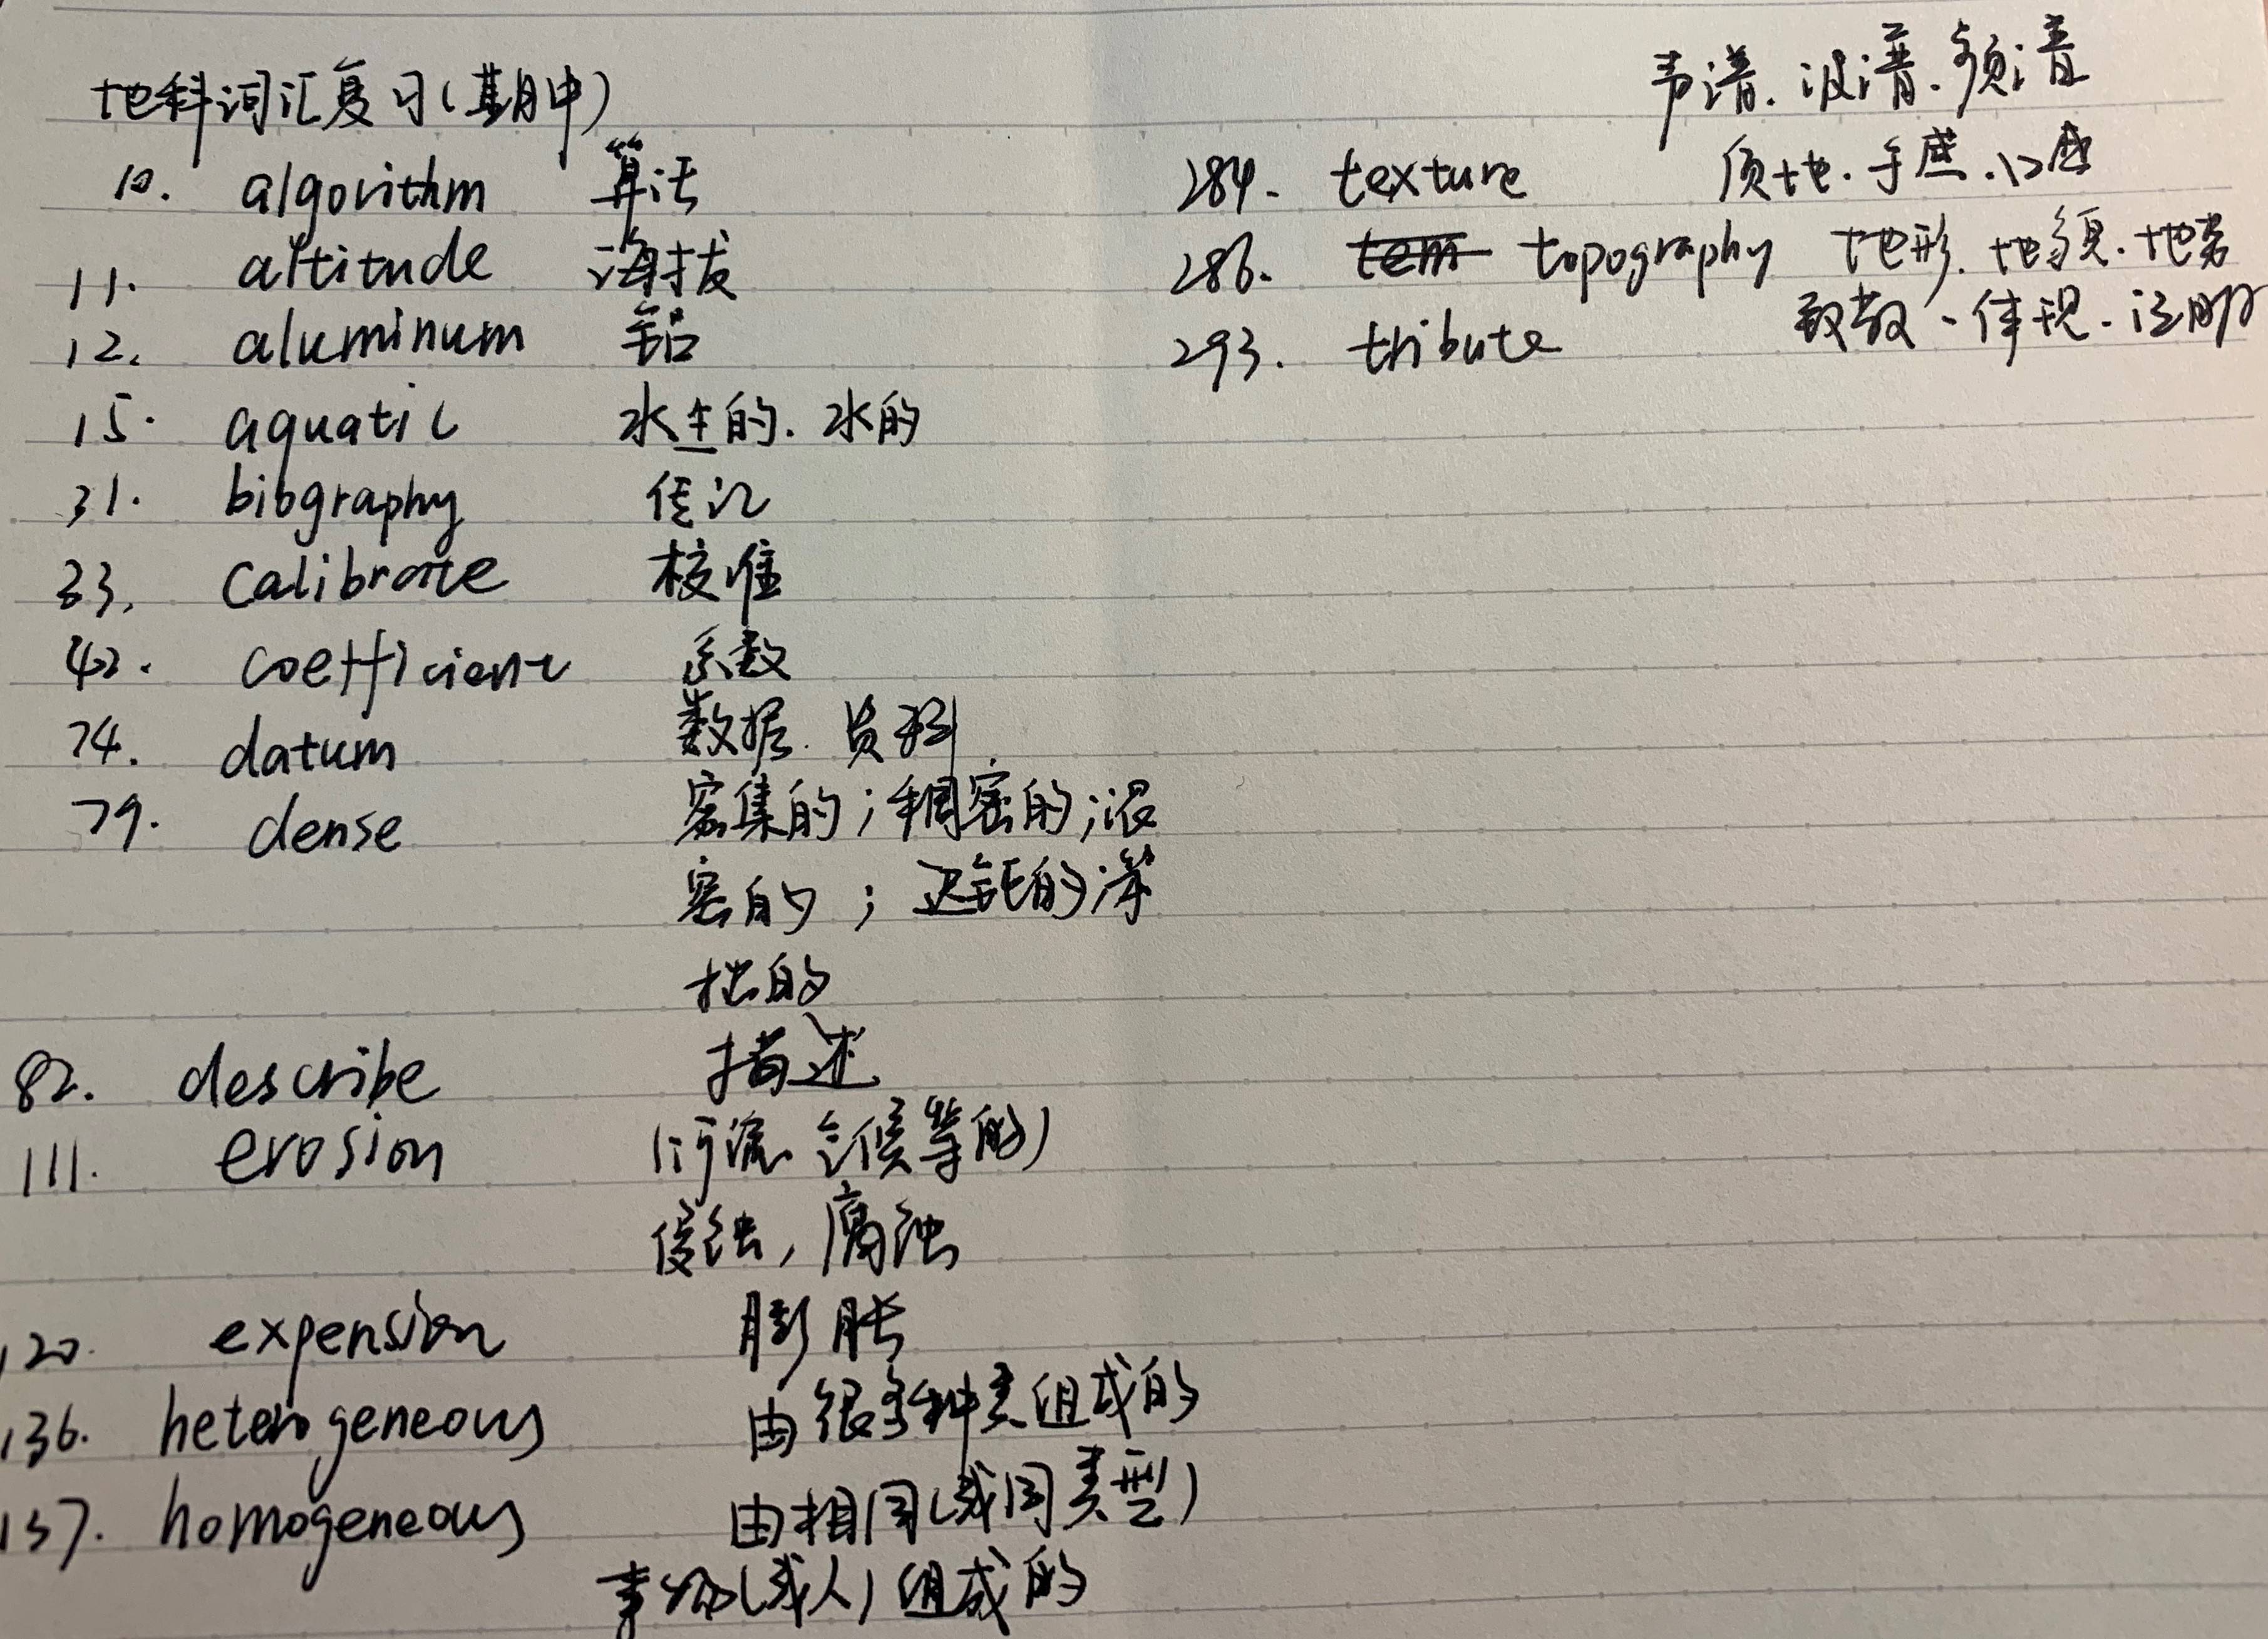 地科词汇复习(期中)
10. algorithm 算法
11. altitude 海拔
12. aluminum 铝
15. aquatic 水生的. 水的
31. biography 传记
33. calibrate 校准
42. coefficient 系数
74. datum 数据. 资料
79. dense 密集的;稠密的;浓
密的;迟钝的;笨
拙的
82. describe 描述
111. erosion (河流、气候等的)
侵蚀,腐蚀
120. expension 膨胀
136. heterogeneous 由很多种类组成的
137. homogeneous 由相同(或同类型)
事物(或人)组成的
声谱. 波谱. 频谱
284. texture 质地. 手感. 口感
286. topography 地形. 地貌. 地势
293. tribute 致敬、体现. 证明